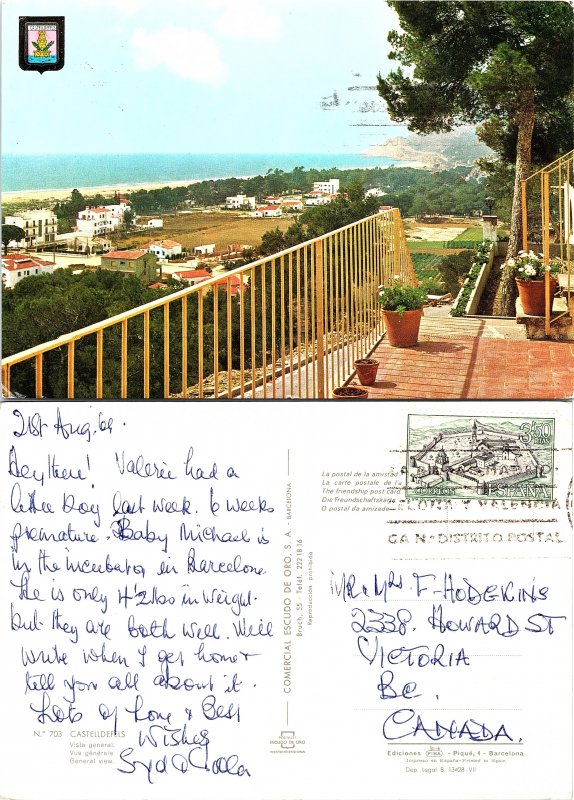 CASTELLDEFELS
21st Aug. 69.
Hey there! Valerie had a
little boy last week. 6 weeks
premature. Baby Michael is
in the incubator in Barcelona
He is only 4½ lbs in weight.
but they are both well. Will
write when I get home +
tell you all about it.
Lots of love & Best
Wishes
Syd
N.º 703 CASTELLDEFELS
Vista general.
Vue générale.
General view.
COMERCIAL ESCUDO DE ORO, S. A. - BARCELONA
Bruch, 55 - Teléf. 222 18 16
Reproducción prohibida
ESCUDO DE ORO
La postal de la amistad
La carte postale de l'a
The friendship post card
Die Freundschaftskarte
O postal da amizade
3'50
PTAS
CORREOS ESPAÑA
GA N.º DISTRITO POSTAL
Mr & Mrs F. HODGKINS
2338. HOWARD ST
VICTORIA
BC.
CANADA.
Ediciones FISA - Piqué, 4 - Barcelona
Impreso en España-Printed in Spain
Dep. legal B. 13428-VII